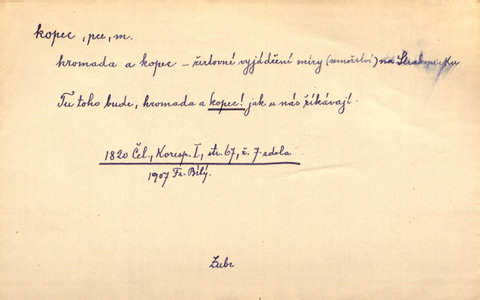 kopec, pce, m.
hromada a kopec – žertovné vyjádření míry (množství) na Strakonicku
Tu toho bude, hromada a kopec! jak u nás říkávají.
1820 Čel., Koresp. I., str. 67, ř. 7. zdola
1907 Fr. Bílý.
Zubr